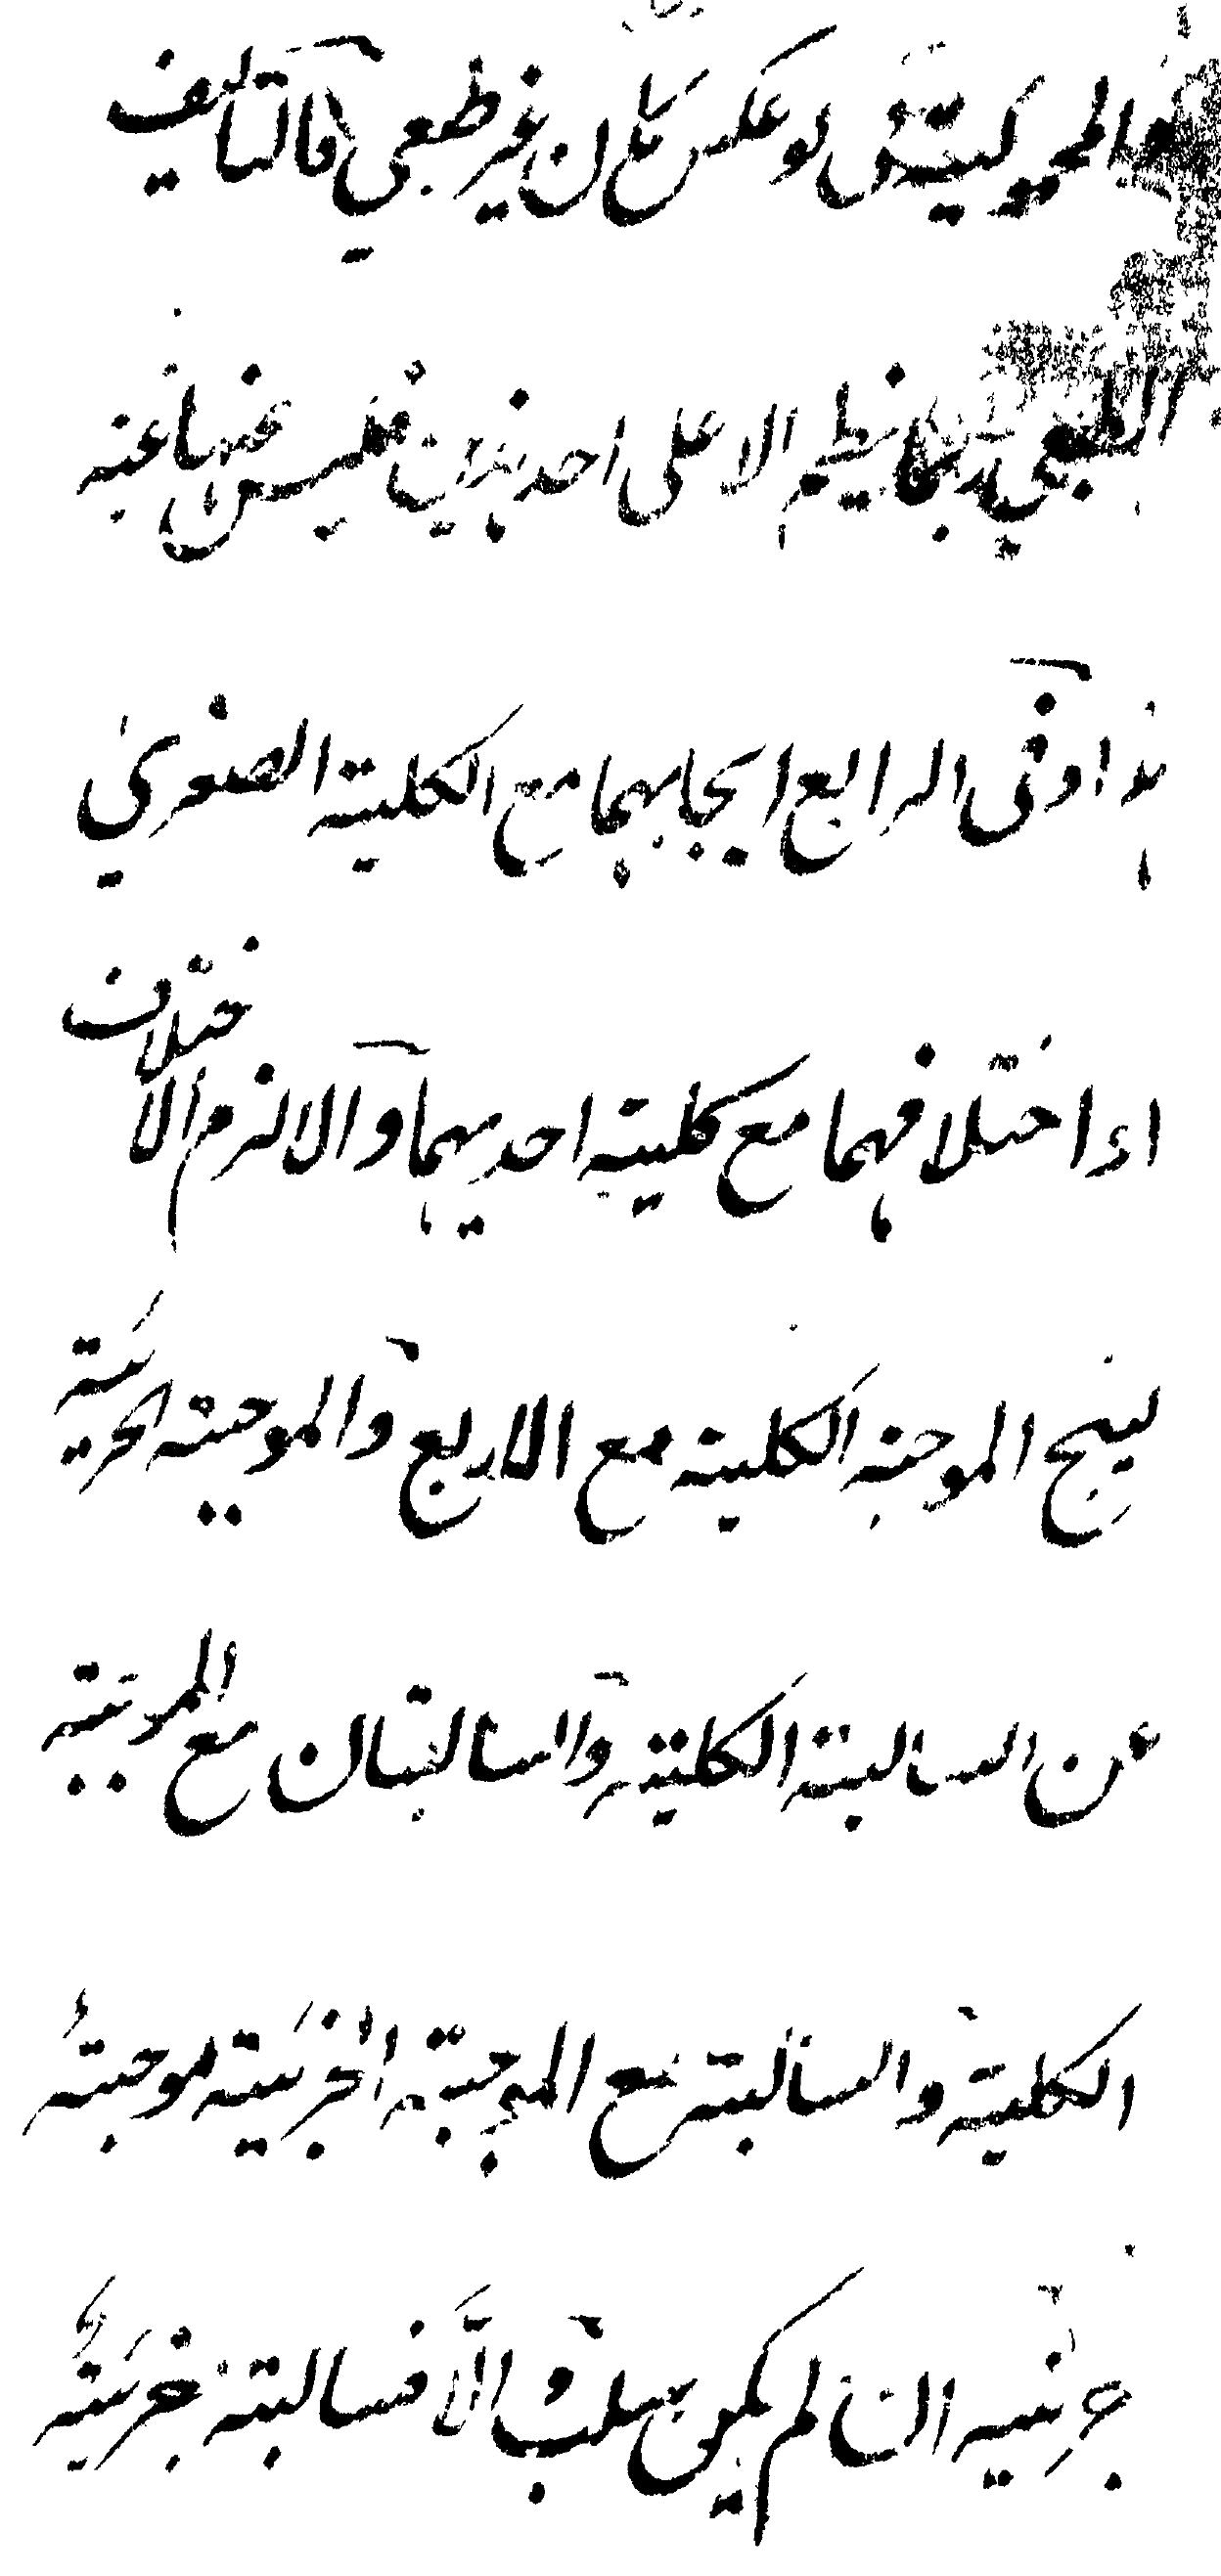 والمحمولية لو عكس كان غير طبعي فالتاليف
الطبعي ربما ينظم الا على احد هذين فليس عنهما غنية
هذا وفي الرابع ايجابهما مع الكلية الصغرى
او اختلافهما مع كلية احديهما والا لزم الاختلاف
لينتج الموجبة الكلية مع الاربع والموجبة الجزئية
مع السالبة الكلية والسالبتان مع الموجبة
الكلية والسالبة مع الموجبة الجزئية موجبة
جزئية ان لم يكن بسلب والا فسالبة جزئية